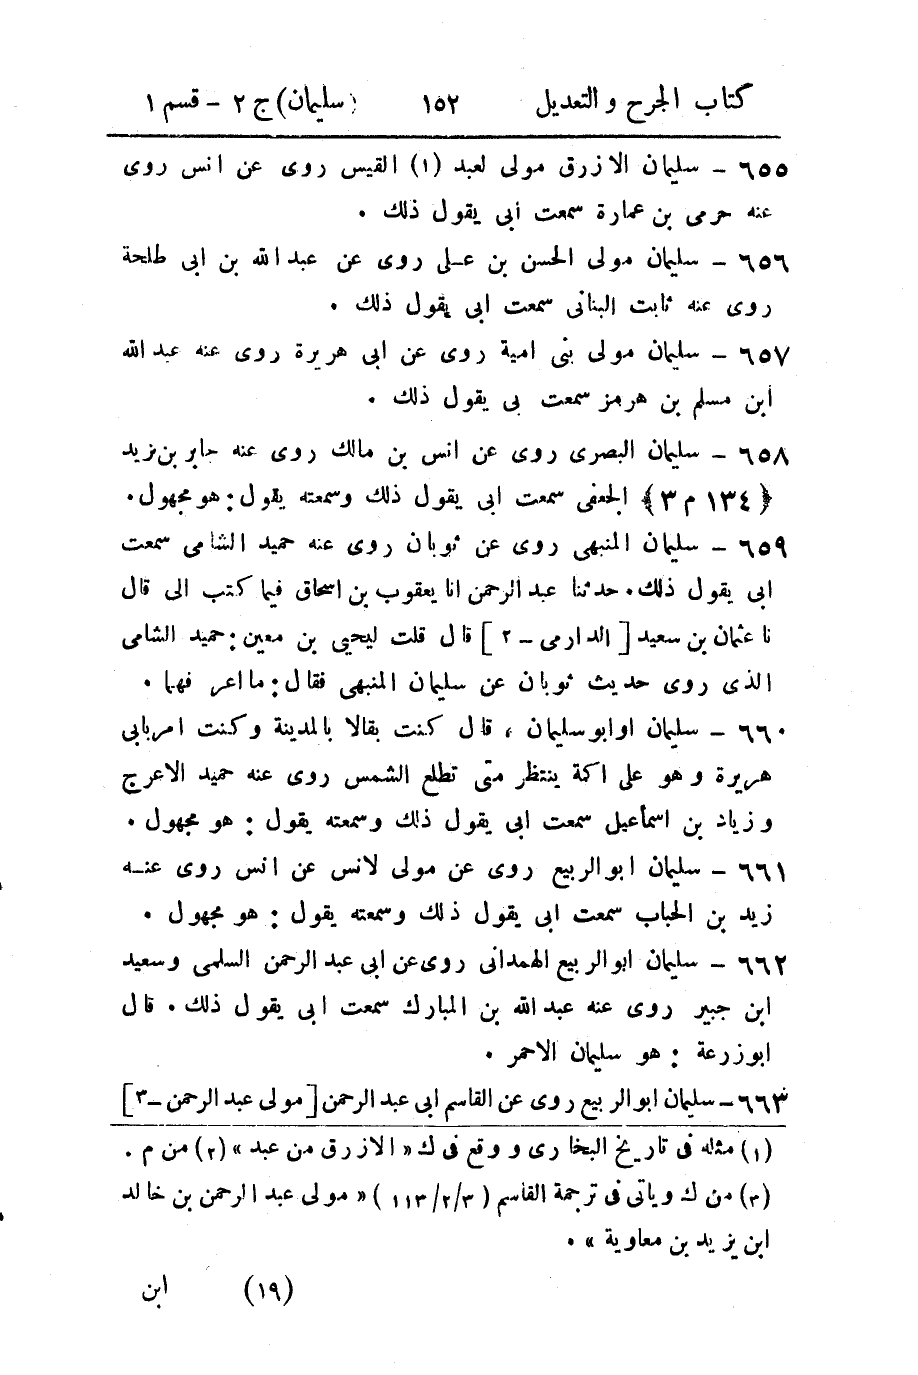 كتاب الجرح والتعديل ١٥٢ (سليمان) ج ٢ - قسم ١
٦٥٥ - سليمان الازرق مولى لعبد (١) القيس روى عن انس روى
عنه حرمى بن عمارة سمعت أبى يقول ذلك .
٦٥٦ - سليمان مولى الحسن بن عـلى روى عن عبد الله بن ابى طلحة
روى عنه ثابت البنانى سمعت ابى يقول ذلك .
٦٥٧ - سليمان مولى بنى امية روى عن ابى هريرة روى عنه عبد الله
أبن مسلم بن هرمز سمعت بى يقول ذلك .
٦٥٨ - سليمان البصرى روى عن انس بن مالك روى عنه جابر بن يزيد
﴿١٣٤ م ٣﴾ الجعفى سمعت ابى يقول ذلك وسمعته يقول: هو مجهول.
٦٥٩ - سليمان المنبهى روى عن ثوبان روى عنه حميد الشامى سمعت
ابى يقول ذلك. حدثنا عبد الرحمن انا يعقوب بن اسحاق فيما كتب الى قال
نا عثمان بن سعيد [الدارمى - ٢] قال قلت ليحيى بن معين: حميد الشامى
الذى روى حديث ثوبان عن سليمان المنبهى فقال: ما اعر فهما .
٦٦٠ - سليمان او ابو سليمان ، قال كنت بقالا بالمدينة وكنت امر بابى
هريرة وهو على اكمة ينتظر متى تطلع الشمس روى عنه حميد الاعرج
وزياد بن اسمأعيل سمعت ابى يقول ذلك وسمعته يقول : هو مجهول .
٦٦١ - سليمان ابو الربيع روى عن مولى لانس عن انس روى عنـه
زيد بن الحباب سمعت ابى يقول ذلك وسمعته يقول : هو مجهول .
٦٦٢ - سليمان ابو الربيع الهمدانى روى عن ابى عبد الرحمن السلمى وسعيد
ابن جبير روى عنه عبد الله بن المبارك سمعت ابى يقول ذلك . قال
ابو زرعة : هو سليمان الاحمر .
٦٦٣ - سليمان ابو الربيع روى عن القاسم ابى عبد الرحمن [مولى عبد الرحمن - ٣]
(١) مثله فى تاريخ البخارى ووقع فى ك «الازرق من عبد» (٢) من م .
(٣) من ك وياتى فى ترجمة القاسم (٣/٢/١١٣) «مولى عبد الرحمن بن خالد
ابن يزيد بن معاوية» .
(١٩) ابن